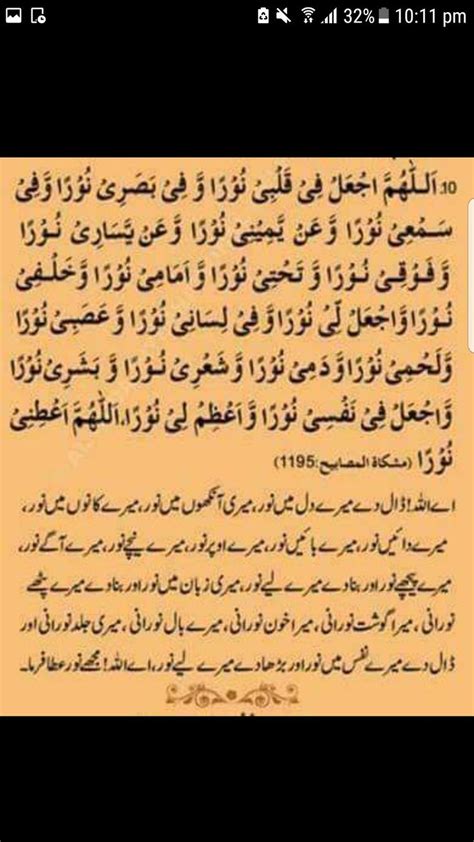 32% 10:11 pm
10. اَللّٰهُمَّ اجْعَلْ فِىْ قَلْبِىْ نُوْرًا وَّ فِىْ بَصَرِىْ نُوْرًا وَّفِىْ
سَمْعِىْ نُوْرًا وَّ عَنْ يَّمِيْنِىْ نُوْرًا وَّ عَنْ يَّسَارِىْ نُوْرًا
وَّ فَوْقِىْ نُوْرًا وَّ تَحْتِىْ نُوْرًا وَّ اَمَامِىْ نُوْرًا وَّ خَلْفِىْ
نُوْرًا وَّاجْعَلْ لِّىْ نُوْرًا وَّ فِىْ لِسَانِىْ نُوْرًا وَّ عَصَبِىْ نُوْرًا
وَّلَحْمِىْ نُوْرًا وَّ دَمِىْ نُوْرًا وَّ شَعْرِىْ نُوْرًا وَّ بَشَرِىْ نُوْرًا
وَّاجْعَلْ فِىْ نَفْسِىْ نُوْرًا وَّ اَعْظِمْ لِىْ نُوْرًا، اَللّٰهُمَّ اَعْطِنِىْ
نُوْرًا (مشكاة المصابيح:1195)
اے اللہ! ڈال دے میرے دل میں نور، میری آنکھوں میں نور، میرے کانوں میں نور،
میرے دائیں نور، میرے بائیں نور، میرے اوپر نور، میرے نیچے نور، میرے آگے نور،
میرے پیچھے نور اور بنا دے میرے لیے نور، میری زبان میں نور اور بنا دے میرے پٹھے
نورانی، میرا گوشت نورانی، میرا خون نورانی، میرے بال نورانی، میری جلد نورانی اور
ڈال دے میرے نفس میں نور اور بڑھا دے میرے لیے نور، اے اللہ! مجھے نور عطا فرما۔